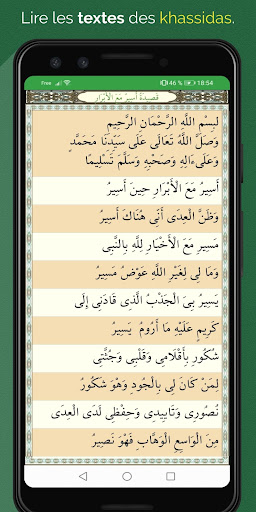 Lire les textes des khassidas.
46 % 18:54
قَصِيدَةُ أَسِيرُ مَعَ الْأَبْرَارِ
بِسْمِ اللَّهِ الرَّحْمَانِ الرَّحِيمِ
وَصَلَّى اللَّهُ تَعَالَى عَلَى سَيِّدِنَا مُحَمَّدٍ
وَعَلَىٰ ءَالِهِ وَصَحْبِهِ وَسَلَّمَ تَسْلِيمًا
أَسِيرُ مَعَ الْأَبْرَارِ حِينَ أَسِيرُ
وَظَنَّ الْعِدَى أَنِّى هُنَاكَ أَسِيرُ
مَسِيرِ مَعَ الْأَخْيَارِ لِلَّهِ بِالنَّبِى
وَمَا لِى لِغَيْرِ اللَّهِ عَوْضُ مَسِيرُ
يَسِيرُ بِىَ الْجَذْبُ الَّذِى قَادَنِى إِلَى
كَرِيمٍ عَلَيْهِ مَا أَرُومُ يَسِيرُ
شَكُورٌ بِأَقْلَامِى وَقَلْبِى وَجُثَّتِى
لِمَنْ كَانَ لِى بِالْجُودِ وَهْوَ شَكُورُ
نُصُورِى وَتَايِيدِى وَحِفْظِى لَدَى الْعِدَى
مِنَ الْوَاسِعِ الْوَهَّابِ فَهْوَ نَصِيرُ